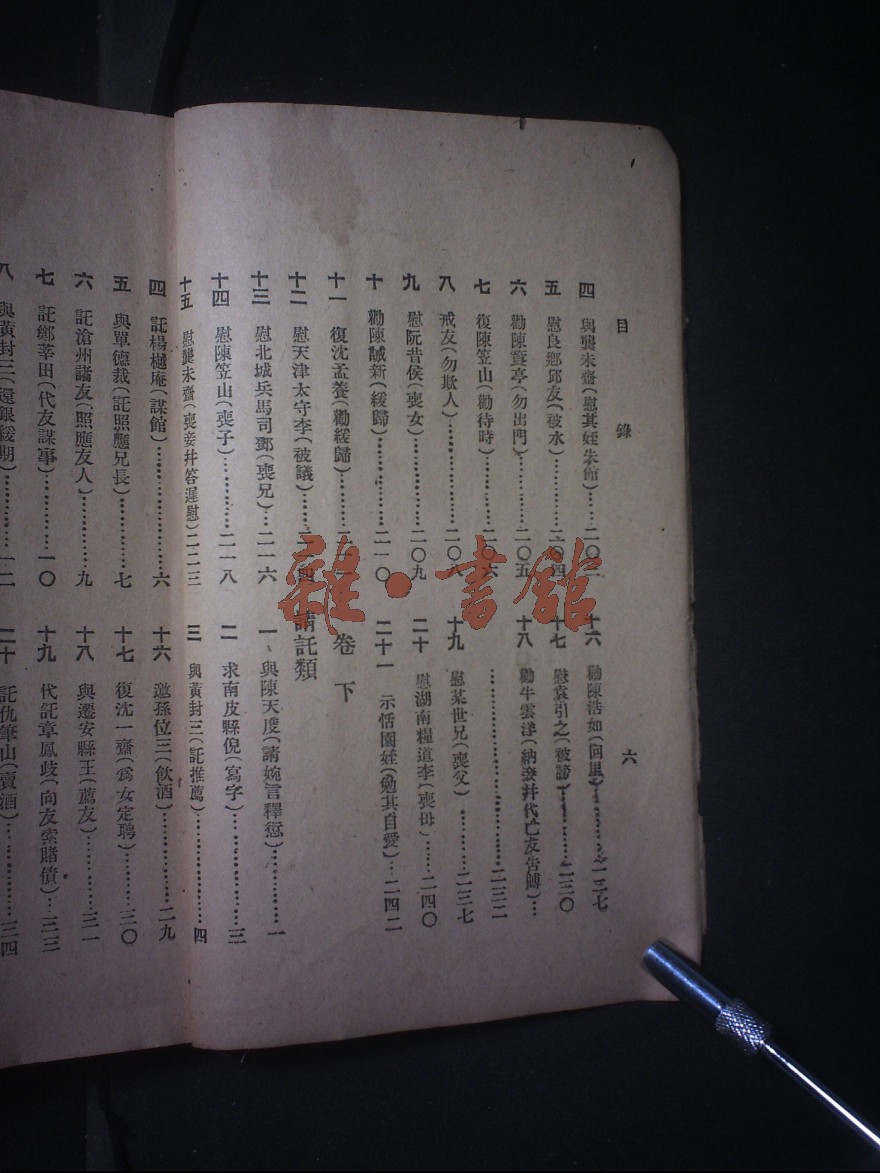 目錄
六
四 與龔未齋（慰其姪失館）……二〇二
五 慰良鄉邱友（被水）……二〇四
六 勸陳霞亭（勿出門）……二〇五
七 復陳笠山（勸待時）……二〇六
八 戒友（勿欺人）……二〇八
九 慰阮昔侯（喪女）……二〇九
十 勸陳誠新（緩歸）……二一〇
十一 復沈孟養（勸緩歸）……二一
十二 慰天津太守李（被議）……二一四
十三 慰北城兵馬司鄧（喪兄）…二一六
十四 慰陳笠山（喪子）……二一八
十五 慰龔未齋（喪妾幷答遲慰）二二三
十六 勸陳浩如（回里）……二二七
十七 慰袁引之（被謗）……二三〇
十八 勸牛雲洋（納婆幷代亡友告賻）…
……二三二
十九 慰某世兄（喪父）……二三七
二十 慰湖南糧道李（喪母）……二四〇
二十一 示恬園姪（勉其自愛）…二四二
卷下
請託類
一、與陳天度（請婉言釋愆）……一
二 求南皮縣倪（寫字）……三
三 與黃封三（託推薦）……四
四 託楊樾庵（謀館）……六
五 與單德裁（託照應兄長）……七
六 託滄州諸友（照應友人）……九
七 託鄭莘田（代友謀事）……一〇
八 與黃封三（還銀緩期）……一二
十六 邀孫位三（飲酒）……二九
十七 復沈一齋（爲女定聘）……三〇
十八 與遷安縣王（薦友）……三一
十九 代託章鳳歧（向友索賭債）…三三
二十 託仇筆山（賣酒）……三四
雜·書館